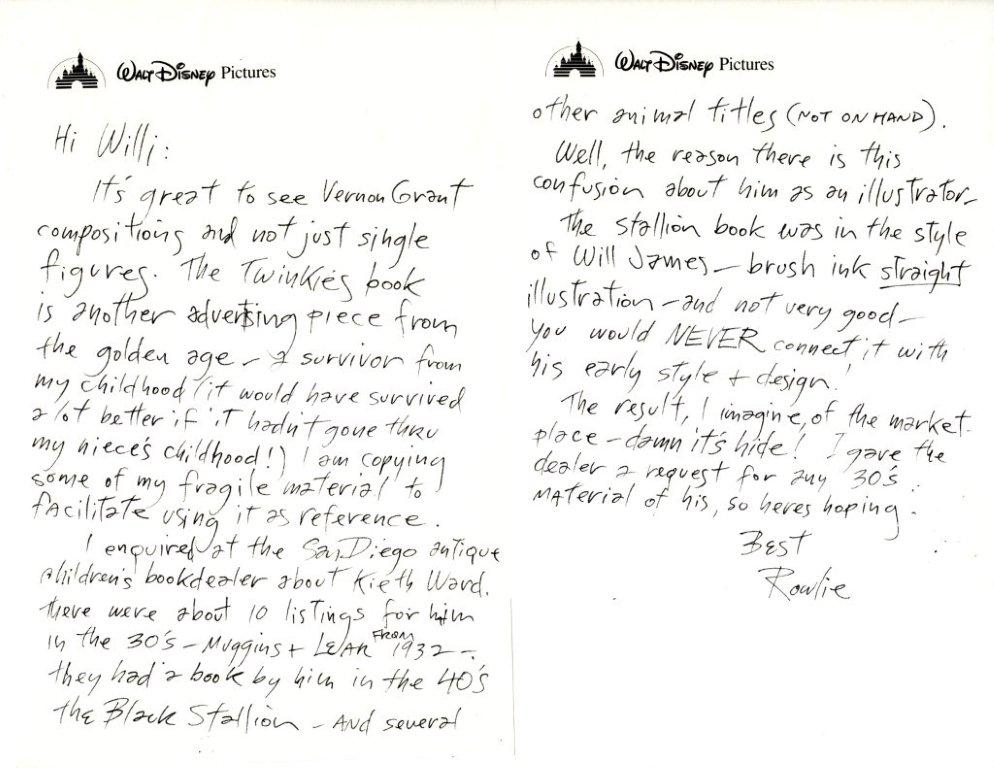 WALT DISNEY Pictures
Hi Willi:
It's great to see Vernon Grant
compositions and not just single
figures. The Twinkies book
is another advertising piece from
the golden age – a survivor from
my childhood (it would have survived
a lot better if it hadn't gone thru
my niece's childhood!) I am copying
some of my fragile material to
facilitate using it as reference.
I enquired at the San Diego antique
children's bookdealer about Kieth Ward.
There were about 10 listings for him
in the 30's – Muggins + LEAR FROM 1932 –
they had a book by him in the 40's
the Black Stallion – AND several
WALT DISNEY Pictures
other animal titles (NOT ON HAND).
Well, the reason there is this
confusion about him as an illustrator –
the stallion book was in the style
of Will James – brush ink straight
illustration – and not very good –
you would NEVER connect it with
his early style + design!
The result, I imagine, of the market
place – damn it's hide! I gave the
dealer a request for any 30's
material of his, so heres hoping.
BEST
Rowlie